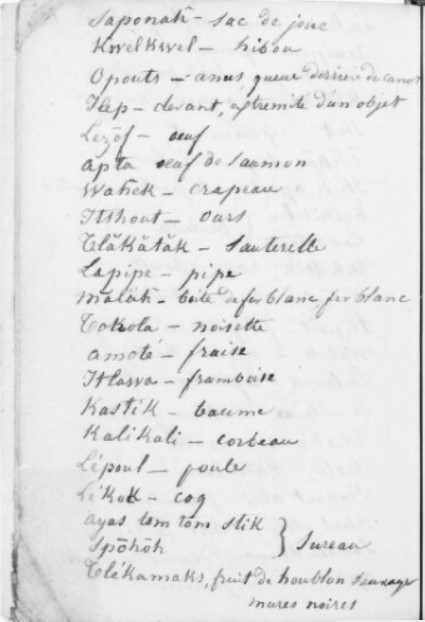 Saponăh - sac de jonc
Kwelkwel - hibou
Opouts - anus queue derrière de canot
Ilep - devant, extremité d'un objet
Lezôf - œuf
apta œuf de saumon
Wahĕk - crapeau
Itshout - ours
Tlăkătăk - sauterelle
Lapipe - pipe
mălăh - boite de fer blanc, fer blanc
Tokola - noisette
amoté - fraise
Itlasva - framboise
Kastik - baume
Kalikali - corbeau
Lépoul - poule
Lékok - coq
ayas tom tom stik
Spōkōh } Sureau
Tlékamaks, fruit de houblon sauvage
mures noires